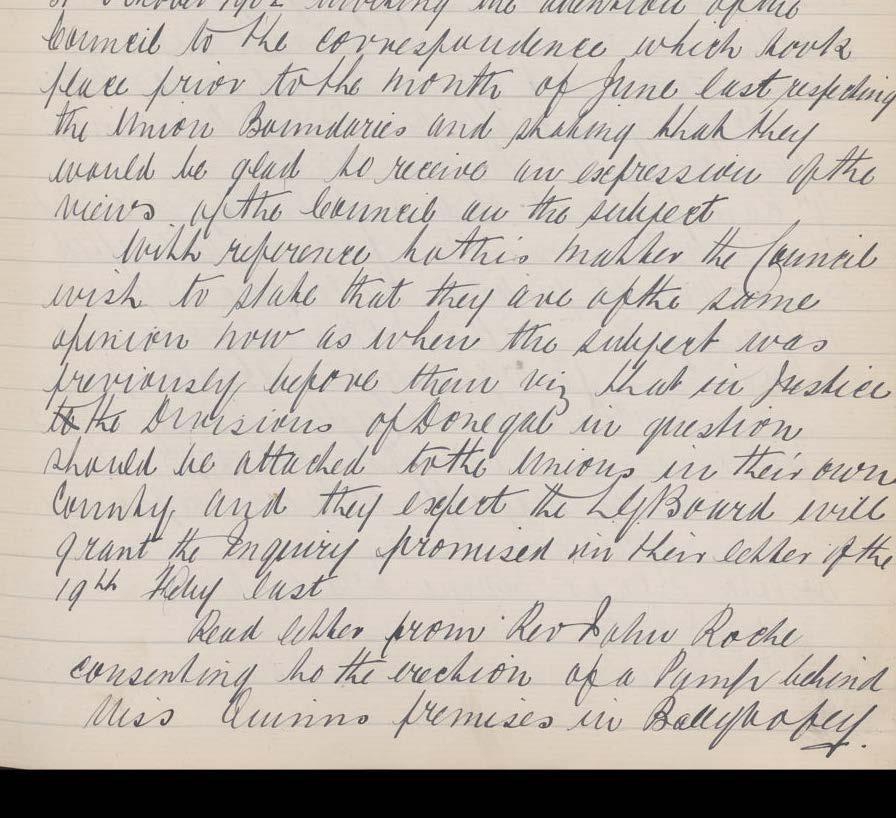 October 1902 inviting the attention of the
Council to the correspondence which took
place prior to the month of June last respecting
the Union Boundaries and stating that they
would be glad to receive an expression of the
views of the Council on the subject
With reference to this matter the Council
wish to state that they are of the same
opinion now as when the subject was
previously before them viz that in Justice
to the Divisions of Donegal in question
should be attached to the Unions in their own
County and they expect the LGBoard will
grant the Inquiry promised in their letter of the
19th Feby last
Read letter from Rev John Roche
consenting to the erection of a Pump behind
Miss Quinns premises in Ballybofey.